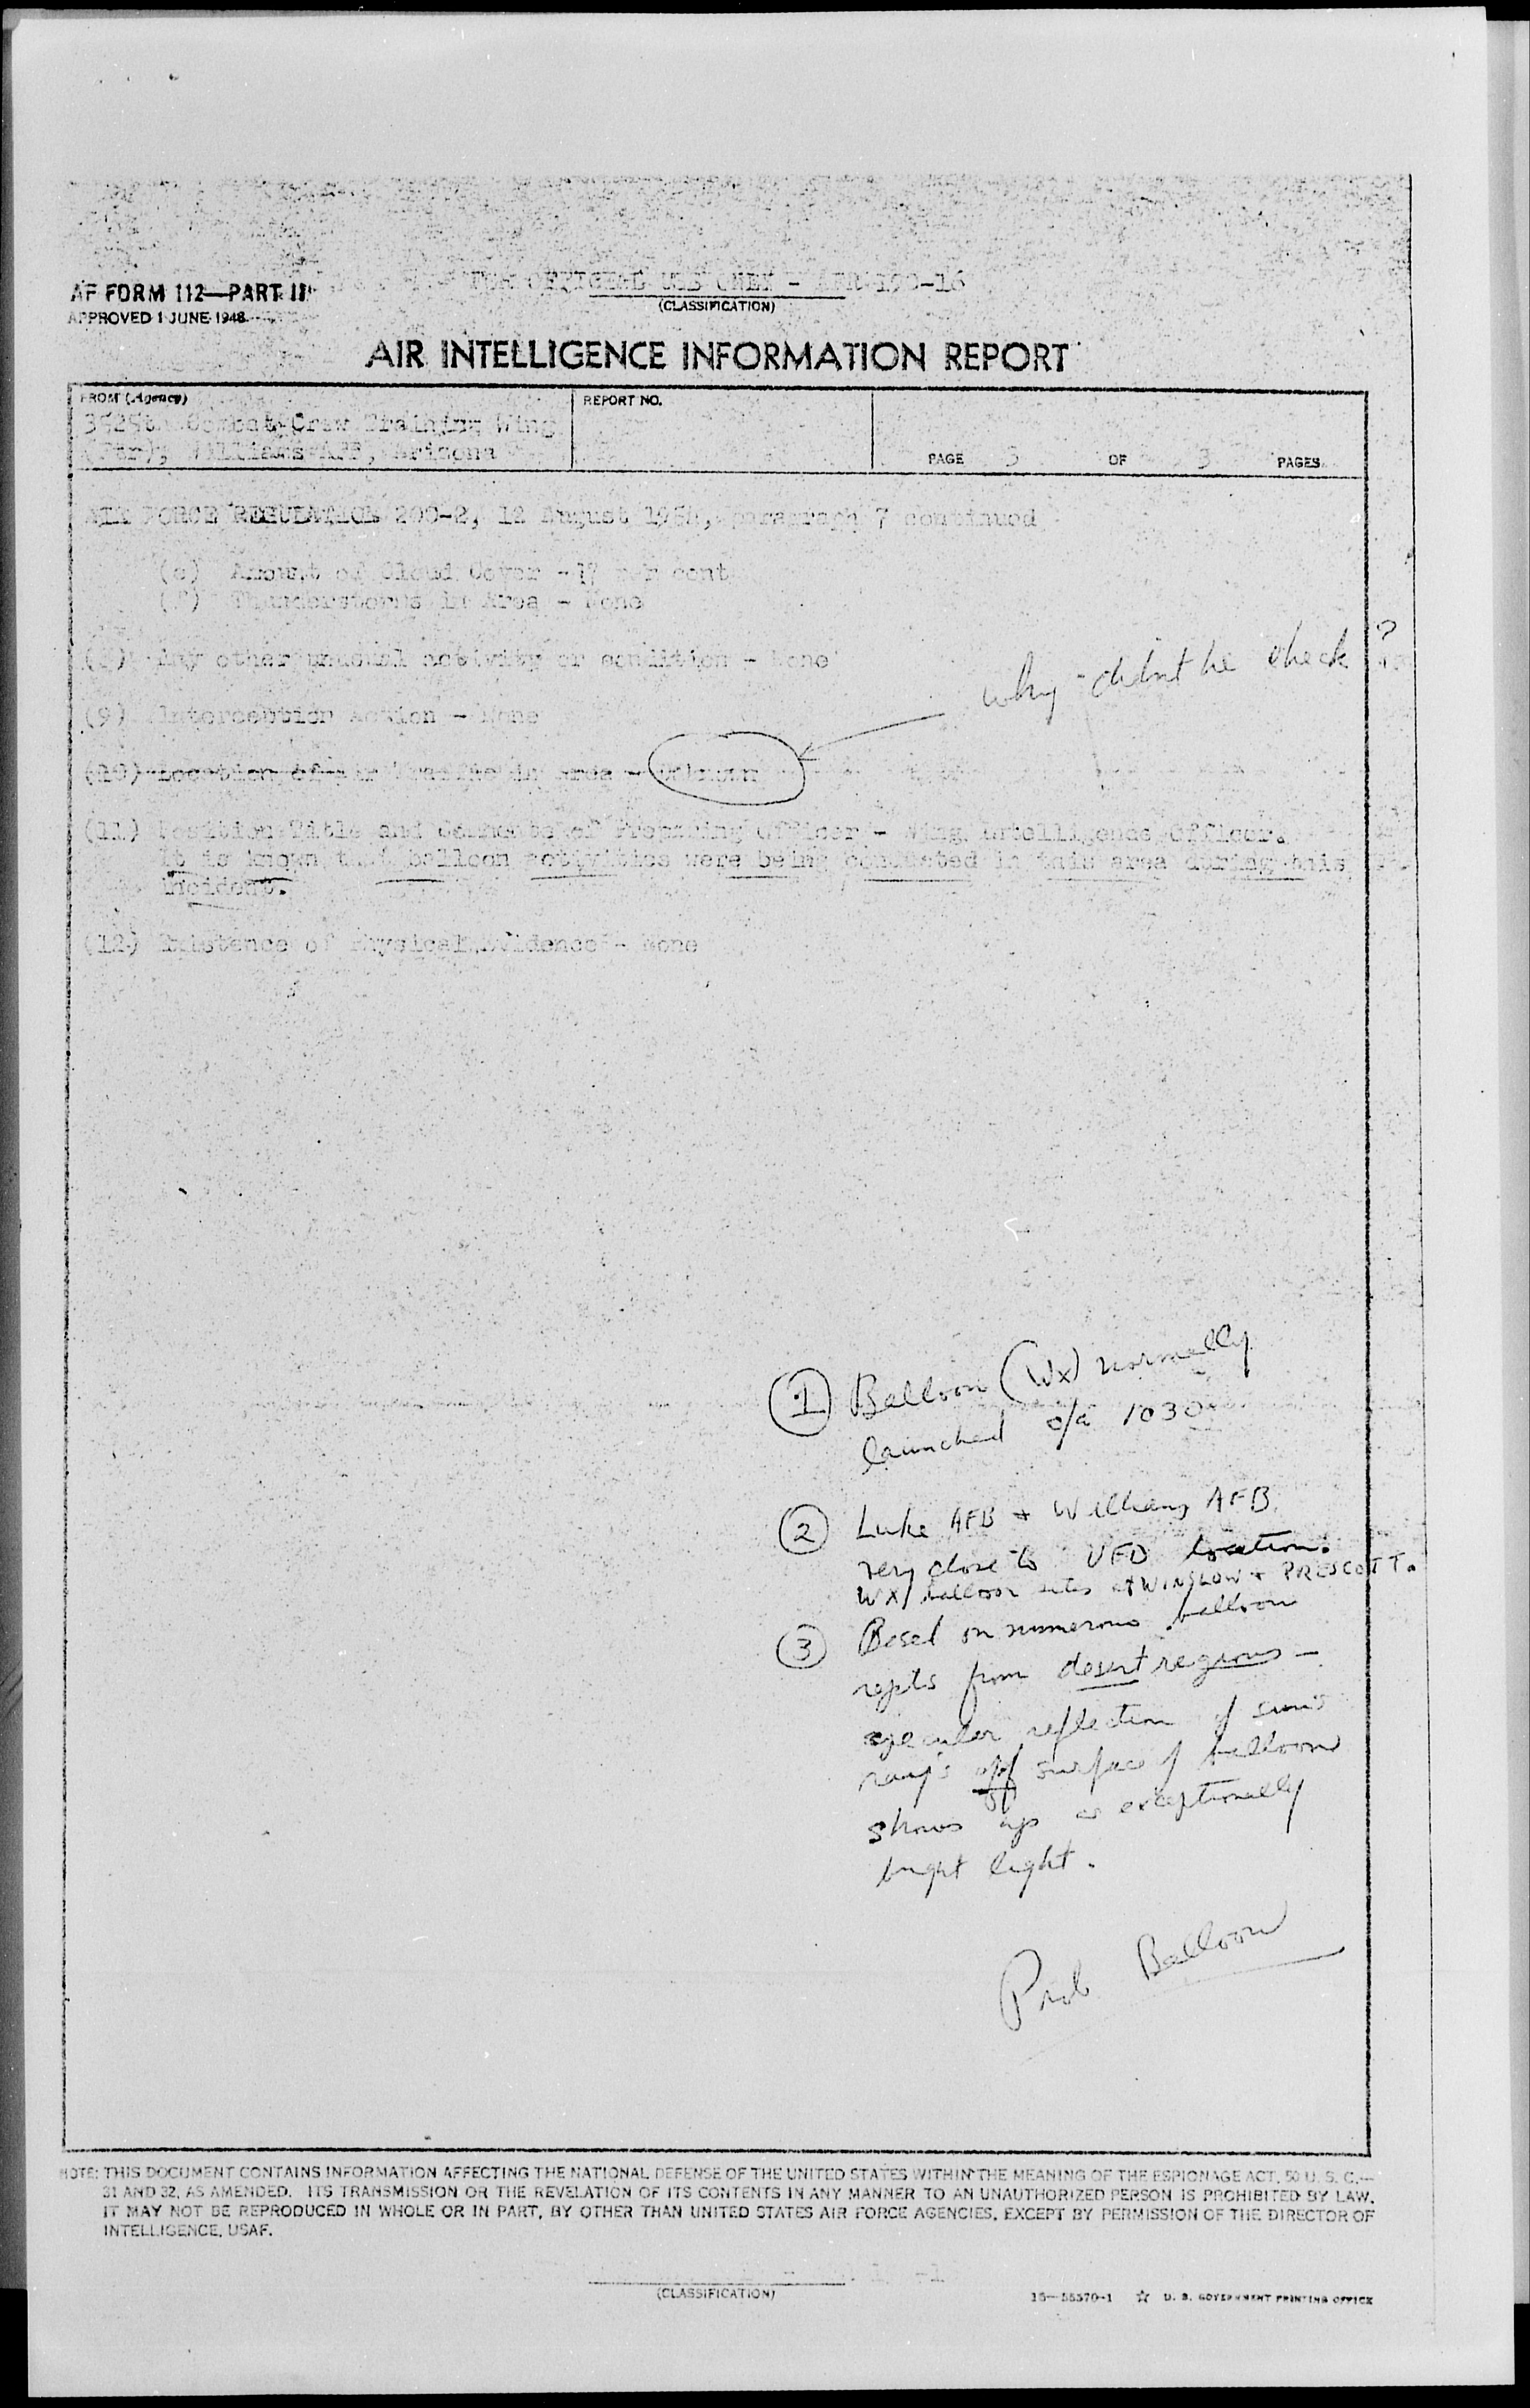 AF FORM 112—PART II
APPROVED 1 JUNE 1948
FOR OFFICIAL USE ONLY - AFR 190-16
(CLASSIFICATION)
AIR INTELLIGENCE INFORMATION REPORT
FROM (Agency)
Combat Crew Training Wing
(Ftr), Williams AFB, Arizona
REPORT NO.
PAGE 3 OF 3 PAGES
AIR FORCE REGULATION 200-2, 12 August 1954, paragraph 7 continued
(e) Amount of Cloud Cover - per cent
(f) Thunderstorms in Area - None
(8) Any other unusual activity or condition - None
why didn't he check ?
(9) Interception Action - None
(10) Location of Air Traffic in Area - Unknown
(11) Position Title and Comments of Preparing Officer - Wing Intelligence Officer.
It is known that balloon activities were being conducted in this area during this
incident.
(12) Existence of Physical Evidence - None
1 Balloon (Wx) normally
launched o/a 1030
2 Luke AFB + Williams AFB
very close to UFO location.
WX/ balloon sites at WINSLOW + PRESCOTT.
3 Based on numerous balloon
repts from desert regions —
specular reflection of sun's
rays off surface of balloon
shows up as exceptionally
bright light.
Prob Balloon
NOTE: THIS DOCUMENT CONTAINS INFORMATION AFFECTING THE NATIONAL DEFENSE OF THE UNITED STATES WITHIN THE MEANING OF THE ESPIONAGE ACT, 50 U. S. C.—
31 AND 32, AS AMENDED. ITS TRANSMISSION OR THE REVELATION OF ITS CONTENTS IN ANY MANNER TO AN UNAUTHORIZED PERSON IS PROHIBITED BY LAW.
IT MAY NOT BE REPRODUCED IN WHOLE OR IN PART, BY OTHER THAN UNITED STATES AIR FORCE AGENCIES, EXCEPT BY PERMISSION OF THE DIRECTOR OF
INTELLIGENCE, USAF.
(CLASSIFICATION)
16—55570-1 ☆ U. S. GOVERNMENT PRINTING OFFICE